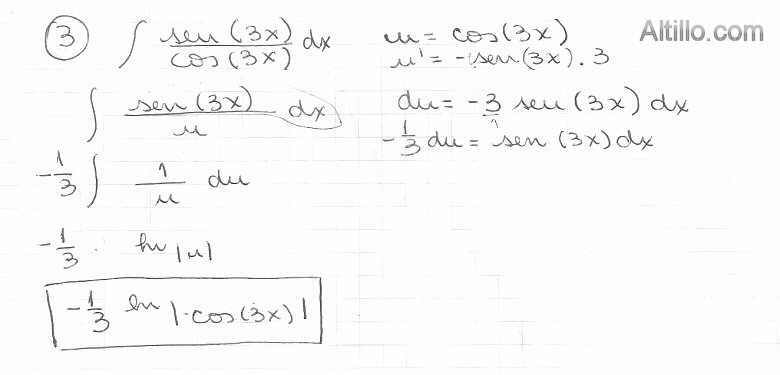 3 ∫ sen(3x)/cos(3x) dx u = cos(3x) Altillo.com
u' = -sen(3x).3
∫ sen(3x)/u dx du = -3 sen(3x) dx
-1/3 du = sen(3x) dx
-1/3 ∫ 1/u du
-1/3 . ln |u|
-1/3 ln |cos(3x)|